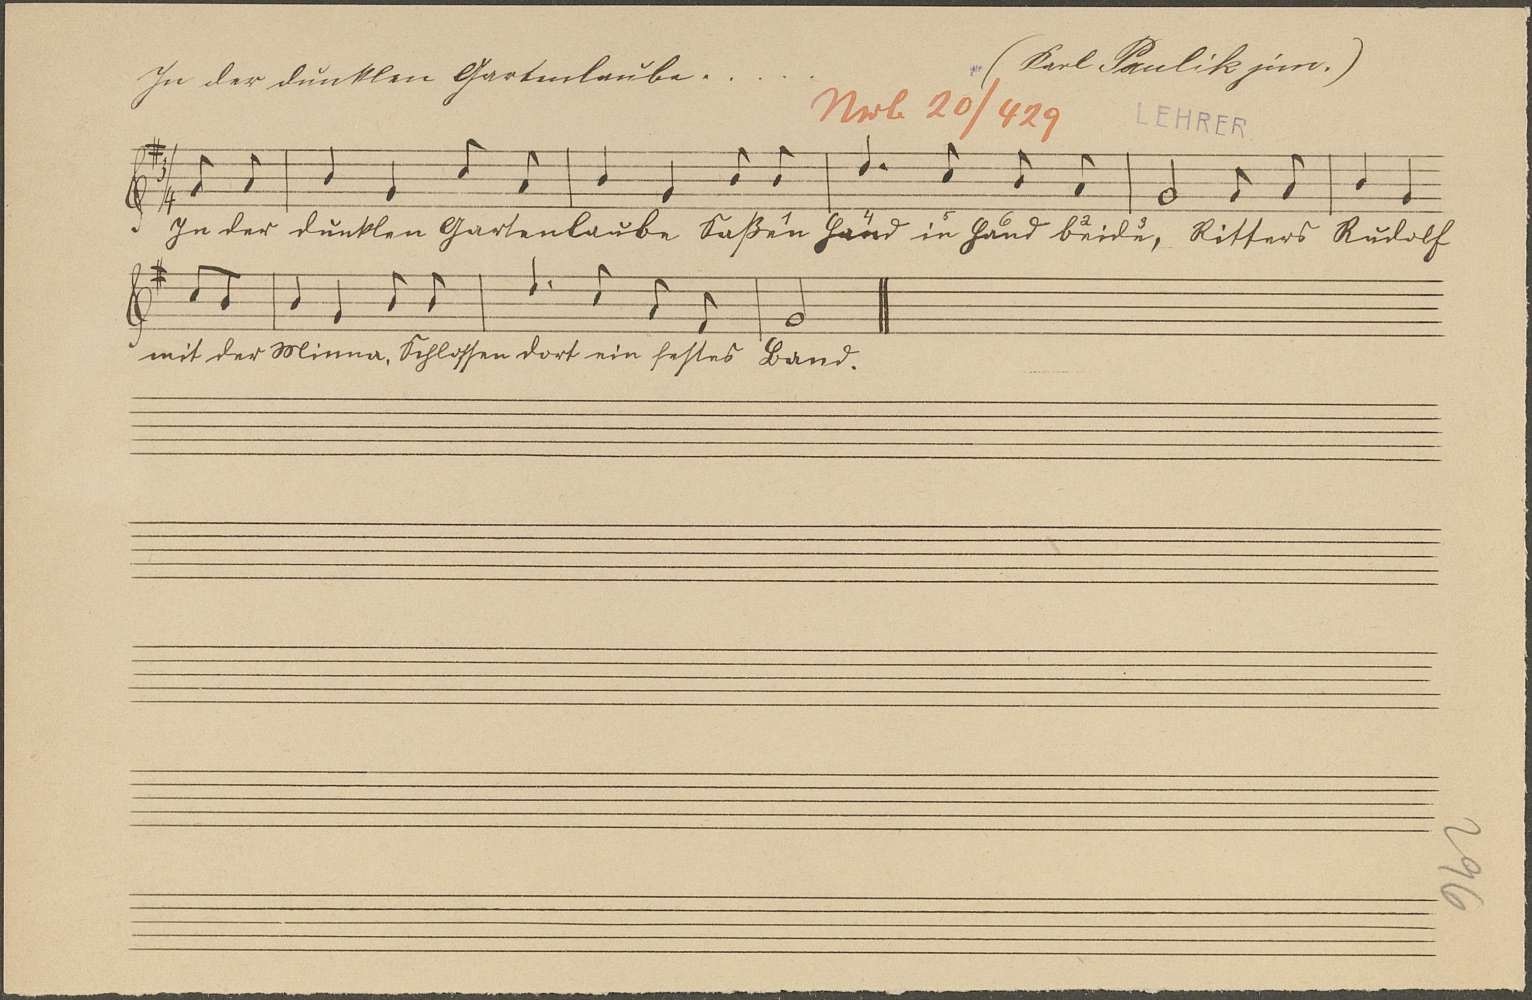 In der dunklen Gartenlaube. . . . .
(Karl Paulik jun.)
20/429
LEHRER
3/4
1 4 5 6 2 3
In der dunklen Gartenlaube Saßen Hand in Hand beide, Ritters Rudolf
mit der Minna, Schlossen dort ein festes Band.
296